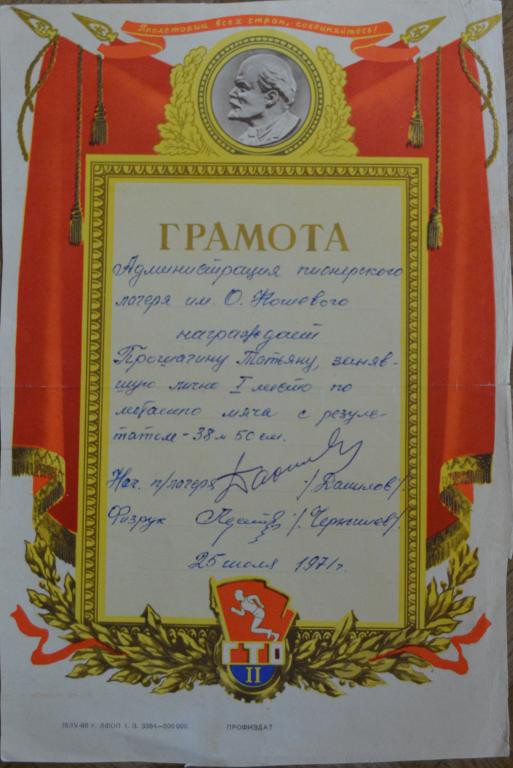 Пролетарии всех стран, соединяйтесь!
ГРАМОТА
Администрация пионерского
лагеря им. О. Кошевого
награждает
Татьяну, заняв-
шую лично I место по
метанию мяча с резуль-
татом – 38 м 50 см.
Нач. п/лагеря /Данилов/
Физрук /Чернышев/
25 июля 1971 г.
ГТО
II
ПРОФИЗДАТ